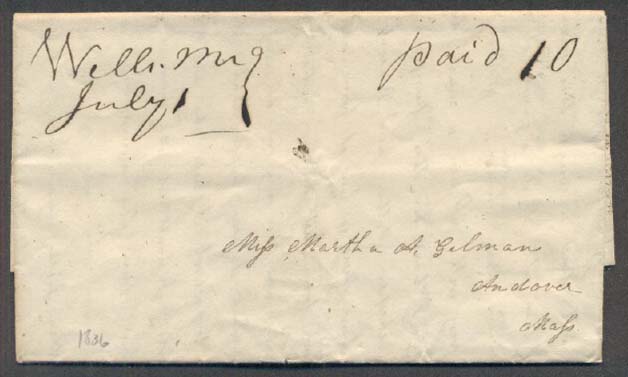 Wells. Me
July 1
Paid 10
Miss Martha A. Gilman
Andover
Mass
1836